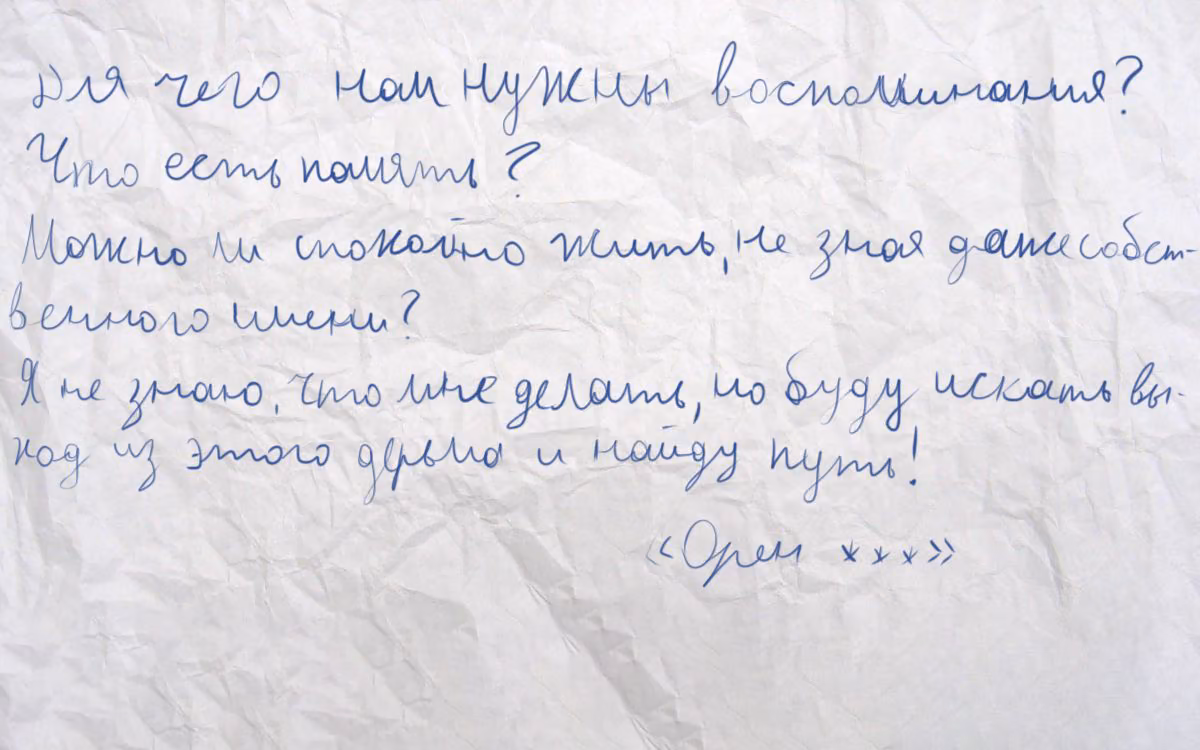 Для чего нам нужны воспоминания?
Что есть память?
Можно ли спокойно жить, не зная даже собст-
венного имени?
Я не знаю, что мне делать, но буду искать вы-
ход из этого дерьма и найду путь!
«Орен ***»